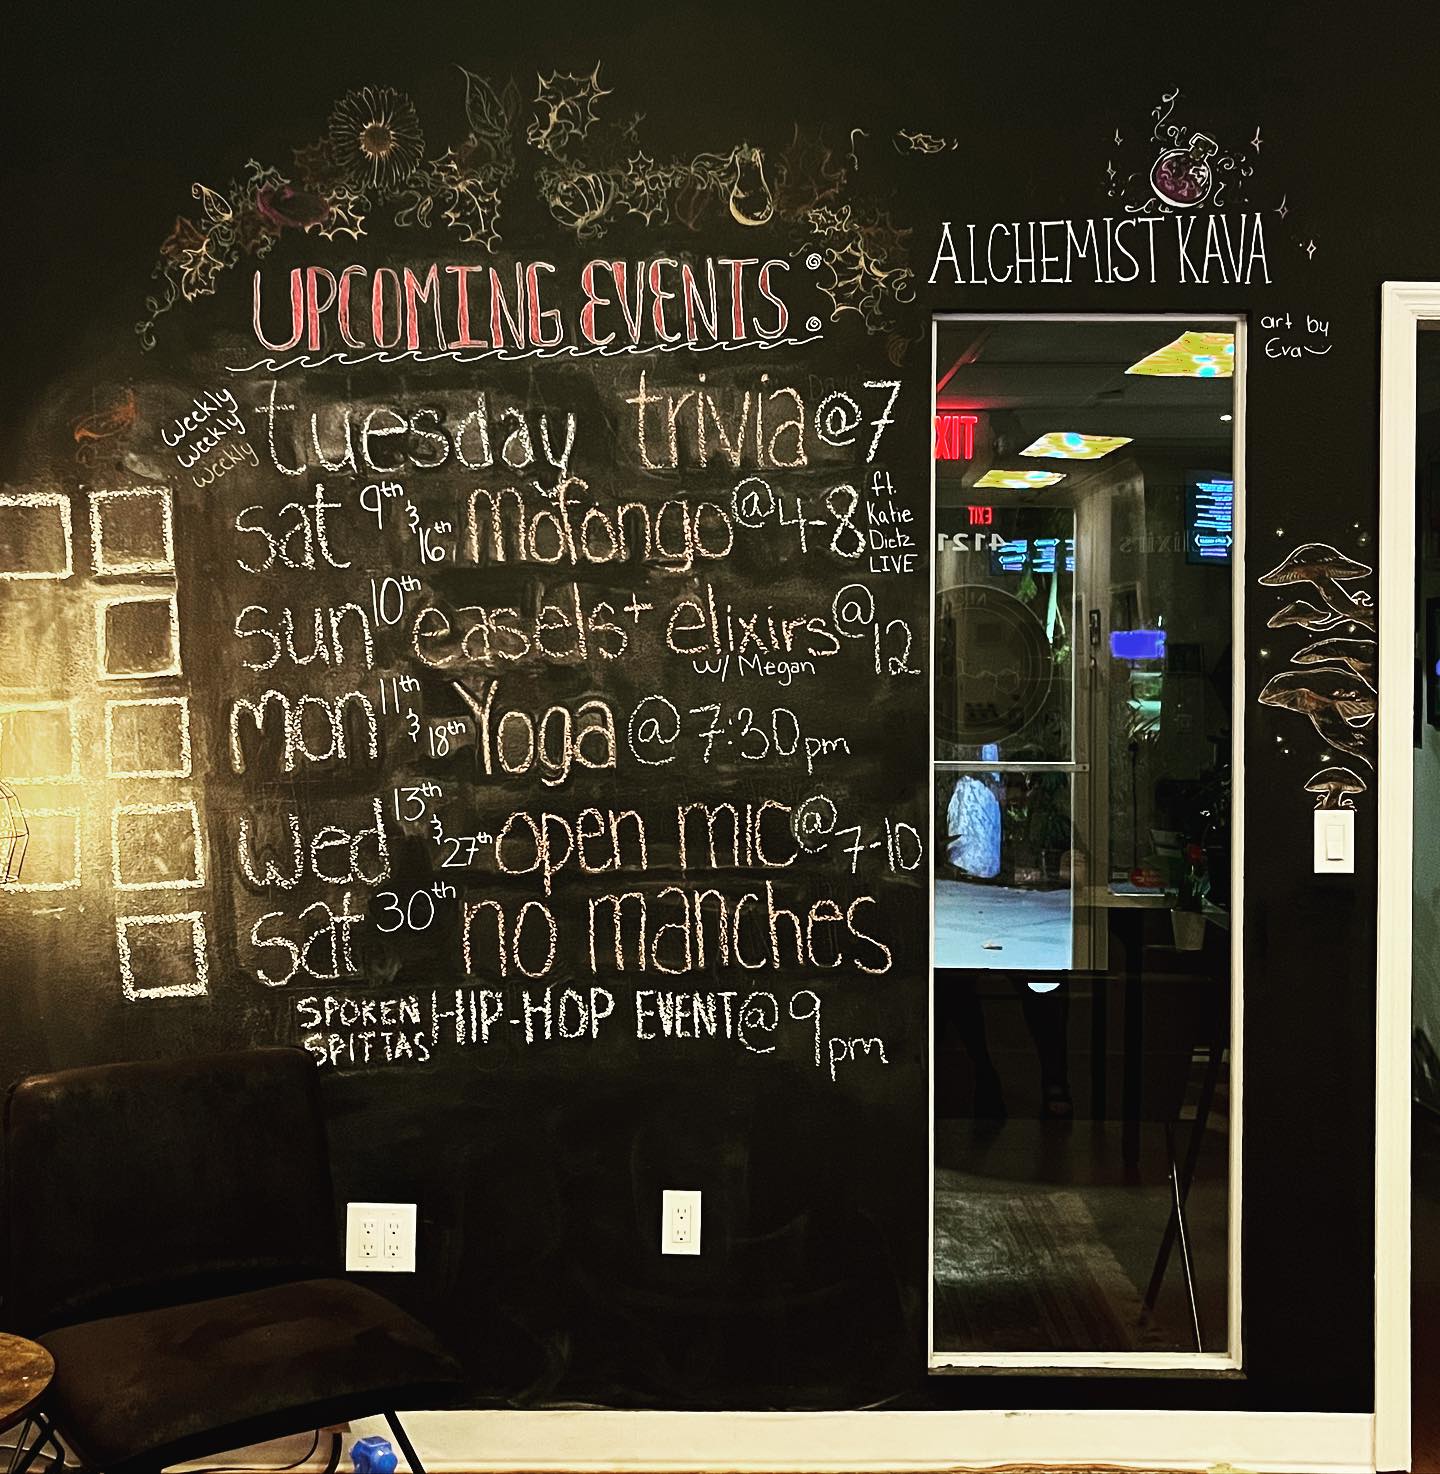 ALCHEMIST KAVA
art by
Eva
UPCOMING EVENTS:
weekly
weekly
weekly
tuesday trivia @ 7
sat 9th & 16th Mofongo @ 4-8 ft. Katie Dietz LIVE
sun 10th easels + elixirs @ 12
w/ Megan
mon 11th & 18th Yoga @ 7:30pm
wed 13th & 27th open mic @ 7-10
sat 30th no manches
SPOKEN SPITTAS HIP-HOP EVENT @ 9pm
EXIT
EXIT
4121
elixirs